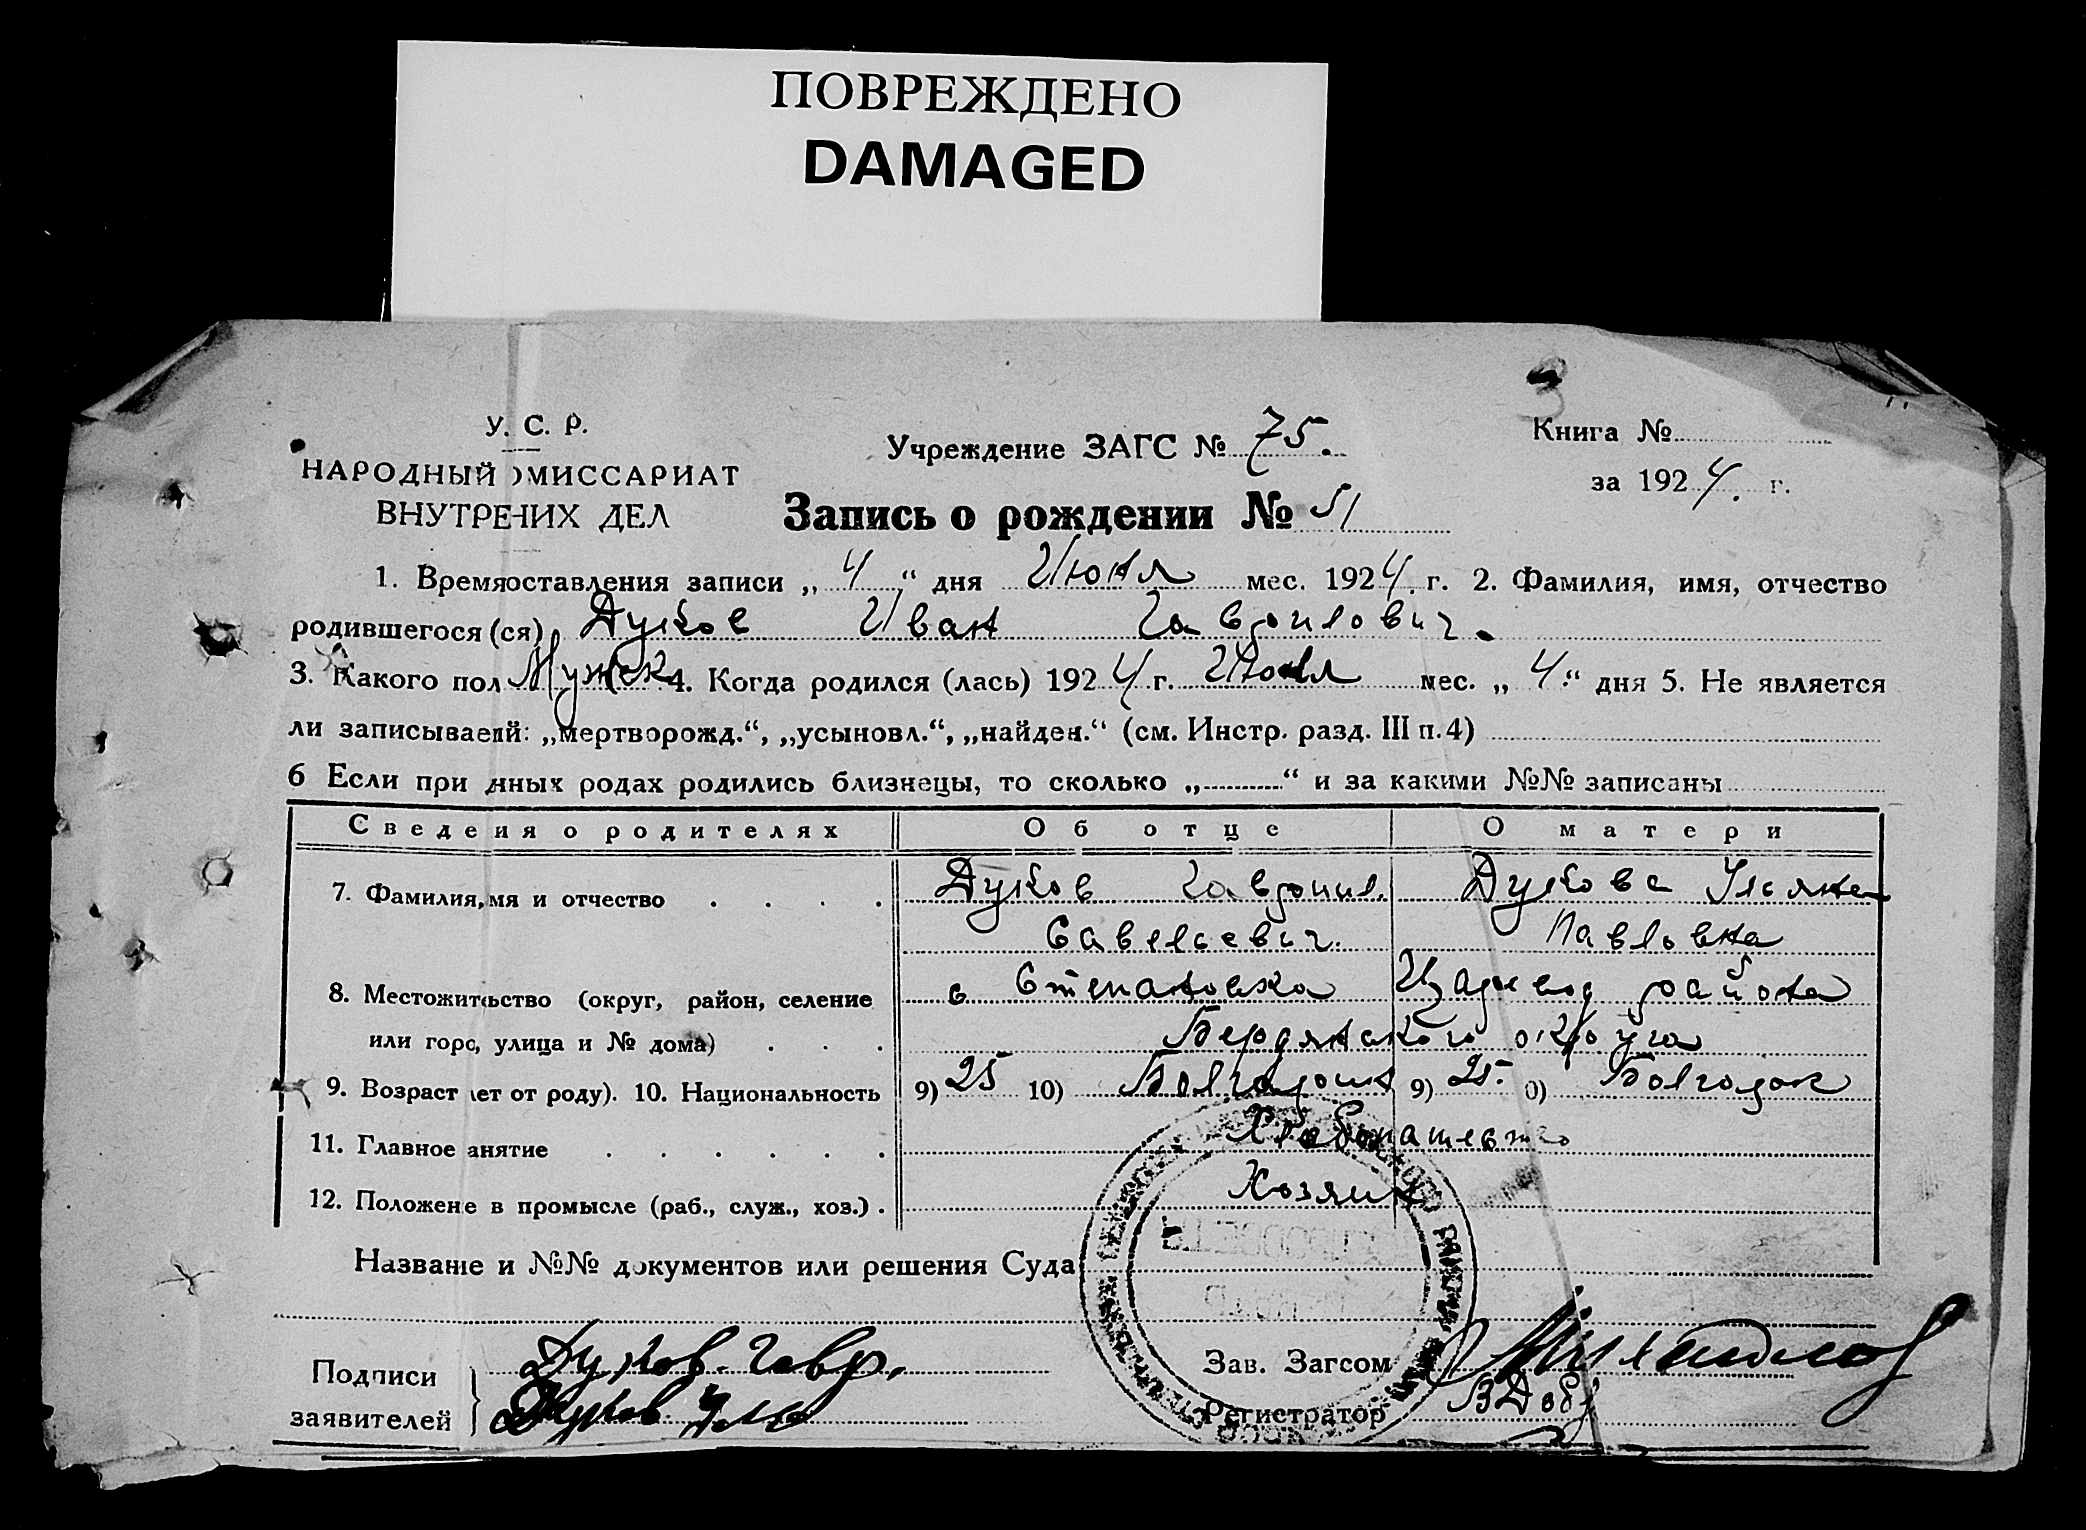 ПОВРЕЖДЕНО
DAMAGED
У. С. Р.
НАРОДНЫЙ ОМИССАРИАТ
ВНУТРЕНИХ ДЕЛ
Учреждение ЗАГС № 75.
Книга №
за 1924. г.
Запись о рождении № 51
1. Время оставления записи „ 4 “ дня Июня мес. 1924. г. 2. Фамилия, имя, отчество
родившегося (ся) Дуков Иван Гавроилович.
3. Какого пол Мужск 4. Когда родился (лась) 1924 г. Июня мес. „ 4. “ дня 5. Не является
ли записываеий: „мертворожд.“, „усыновл.“, „найден.“ (см. Инстр. разд. III п. 4)
6 Если при нных родах родились близнецы, то сколько „ “ и за какими №№ записаны
Сведения о родителях Об отце О матери
7. Фамилия, мя и отчество Дуков Гавроил. Дукова Ульяна
Савельевич. Павловна
8. Местожительство (округ, район, селение с Степановка района
или горо, улица и № дома) Бердянского округа
9. Возраст лет от роду). 10. Национальность 9) 25 10) Болгарин 9) 25. 0) Болгарок
11. Главное анятие Хлебопашество
12. Положене в промысле (раб., служ., хоз.) Хозяин
Название и №№ документов или решения Суда
Подписи Дуков. Гавр. Зав. Загсом
заявителей Дуков Уль Регистратор